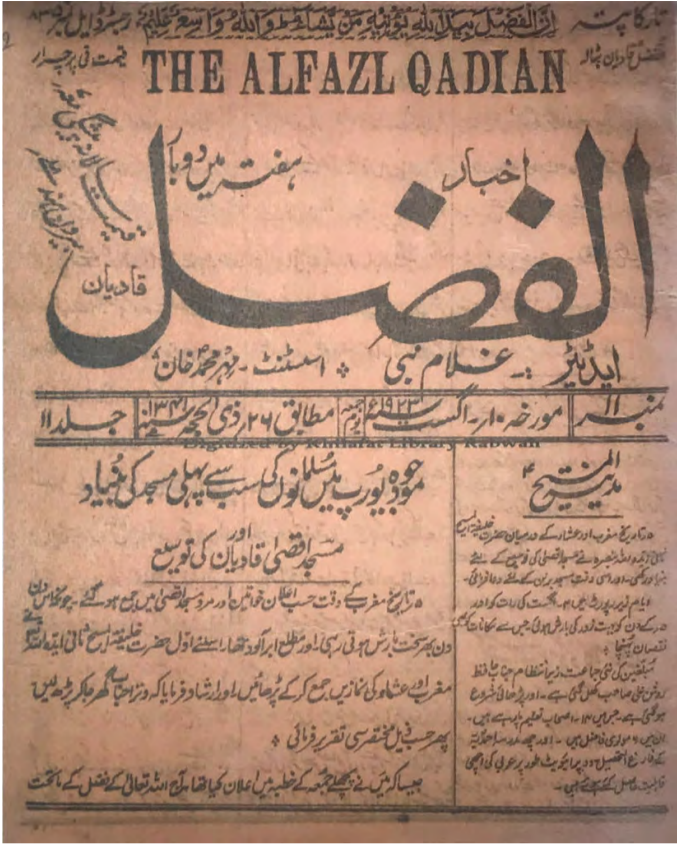 ان الفضل بید اللہ یؤتیہ من یشاء واللہ واسع علیم
تار کا پتہ
الفضل قادیان بٹالہ
رجسٹرڈ ایل نمبر
قیمت فی پرچہ ار
THE ALFAZL QADIAN
اخبار
ہفتہ میں دو بار
الفضل
قادیان
قیمت سالانہ پیشگی
ایڈیٹر :۔ غلام نبی * اسسٹنٹ ۔ مہر محمد خان
نمبر ۱۱ مورخہ ۱۰۔ اگست ۱۹۲۳ء یوم جمعہ مطابق ۲۶ ذی الحجہ ۱۳۴۱ جلد ۱۱
Digitized by Khilafat Library Rabwah
المسیح
مدینۃ
۵ تاریخ مغرب اور عشاء کے درمیان حضرت خلیفۃ المسیح
ثانی ایدہ اللہ بنصرہ نے مسجد اقصیٰ کی توسیع کے لئے
بنیاد رکھی۔ اور اسی وقت مسجد برلن کے لئے دعا فرمائی۔
ایام زیر رپورٹ میں ۴۔ اگست کی رات کو اور
۵ کے دن کو بہت زور کی بارش ہوئی جس سے مکانات کو بھی
نقصان پہنچا۔
مبلغین کی نئی جماعت زیر انتظام جناب حافظ
روشن علی صاحب کھل گئی ہے۔ اور پڑھائی شروع
ہو گئی ہے۔ جس میں ۱۳۔ اصحاب تعلیم پا رہے ہیں۔
ان میں ۶ مولوی فاضل ہیں۔ اور چھ مدرسہ احمدیہ
کے فارغ التحصیل ۔ پرائیویٹ طور پر عربی کی اچھی
قابلیت حاصل کئے ہوئے ہیں۔
موجودہ یورپ میں مسلمانوں کی سب سے پہلی مسجد کی بنیاد
اور
مسجد اقصیٰ قادیان کی توسیع
۵ تاریخ مغرب کے وقت حسب اعلان خواتین اور مرد مسجد اقصیٰ میں جمع ہو گئے۔ چونکہ اس دن
دن بھر سخت بارش ہوتی رہی۔ اور مطلع ابر آلود تھا۔ اسلئے اول حضرت خلیفۃ المسیح ثانی ایدہ اللہ نے
مغرب اور عشاء کی نمازیں جمع کر کے پڑھائیں۔ اور ارشاد فرمایا کہ وتر احباب گھر جا کر پڑھ لیں
پھر حسب ذیل مختصر سی تقریر فرمائی *
جیسا کہ میں نے پچھلے جمعہ کے خطبہ میں اعلان کیا تھا۔ آج اللہ تعالیٰ کے فضل کے ماتحت